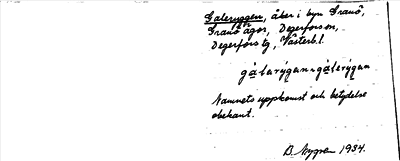 Galaryggen, åker i byn Granö,
Granö ägor, Degerfors sn,
Degerfors tg, Västerb. l.
gàlarýgan ~ gàlarýgan
Namnets uppkomst och betydelse
obekant.
B. Nygren 1934.